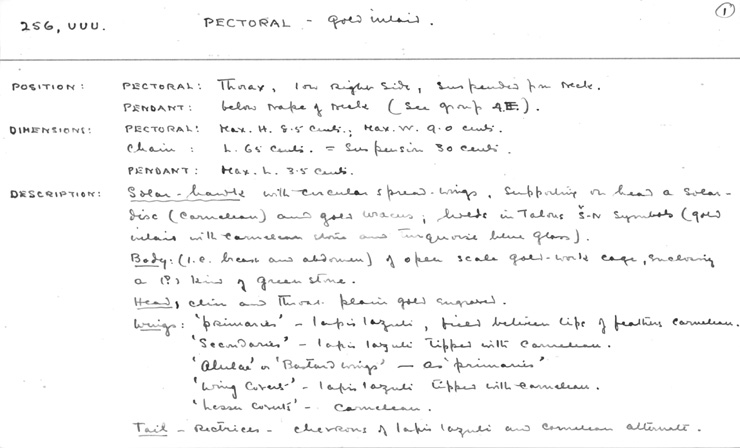 1
256, UUU. PECTORAL - gold inlaid.
POSITION: PECTORAL: Thorax, low right side, suspended from neck.
PENDANT: below nape of neck (see group 4E.).
DIMENSIONS: PECTORAL: Max. H. 8.5 cents.; Max. W. 9.0 cents.
Chain: L. 65 cents. = Suspension 30 cents.
PENDANT: Max. L. 3.5 cents.
DESCRIPTION: Solar-hawk with circular spread-wings, supporting on head a solar-
disc (carnelian) and gold uraeus; holds in Talons Š-N symbols (gold
inlaid with carnelian stone and turquoise blue glass).
Body: (i.e. breast and abdomen) of open scale gold-work cage, enclosing
a (?) kind of green stone.
Head, chin and throat plain gold engraved.
Wings: 'primaries' - lapis lazuli, field between tips of feathers carnelian.
'Secondaries' - lapis lazuli tipped with carnelian.
'Alulae' or 'Bastard wings' — as 'primaries'
'Wing Coverts' - lapis lazuli tipped with carnelian.
'Lesser coverts' - carnelian.
Tail - Rectrices - chevrons of lapis lazuli and carnelian alternate.